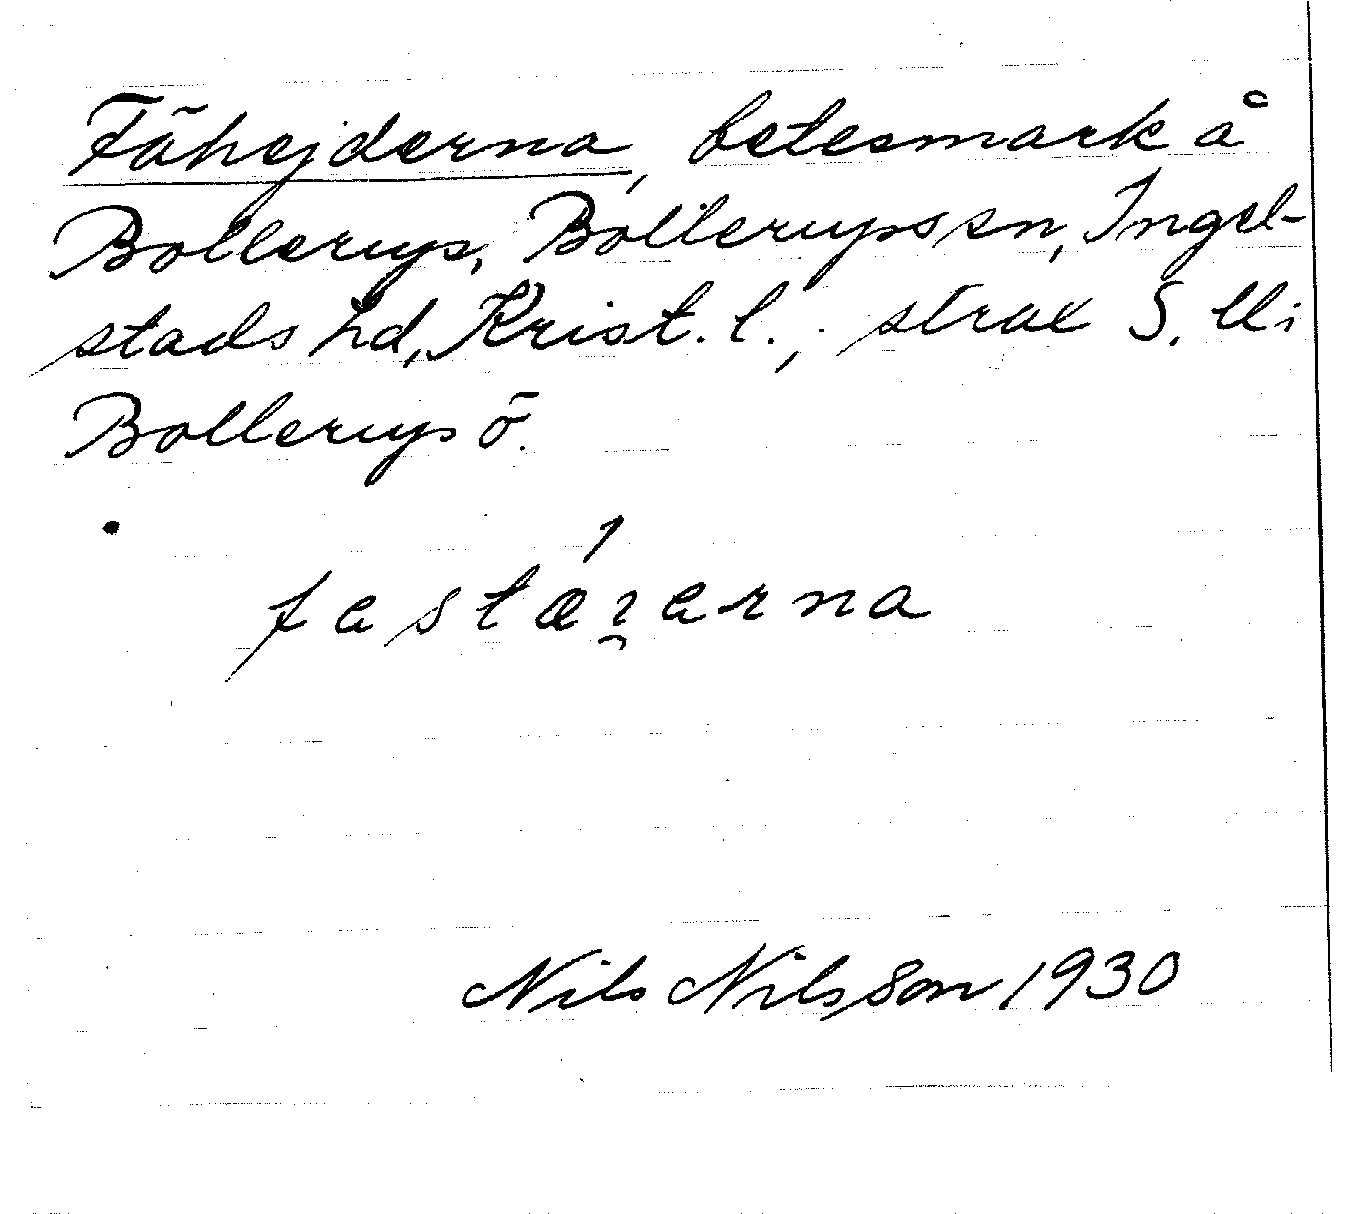 Fähejderna, betesmark å
Bollerup, Bollerups sn, Ingel-
stads hd, Krist. l., strax S. lli
Bollerup ö.
Nils Nilsson 1930